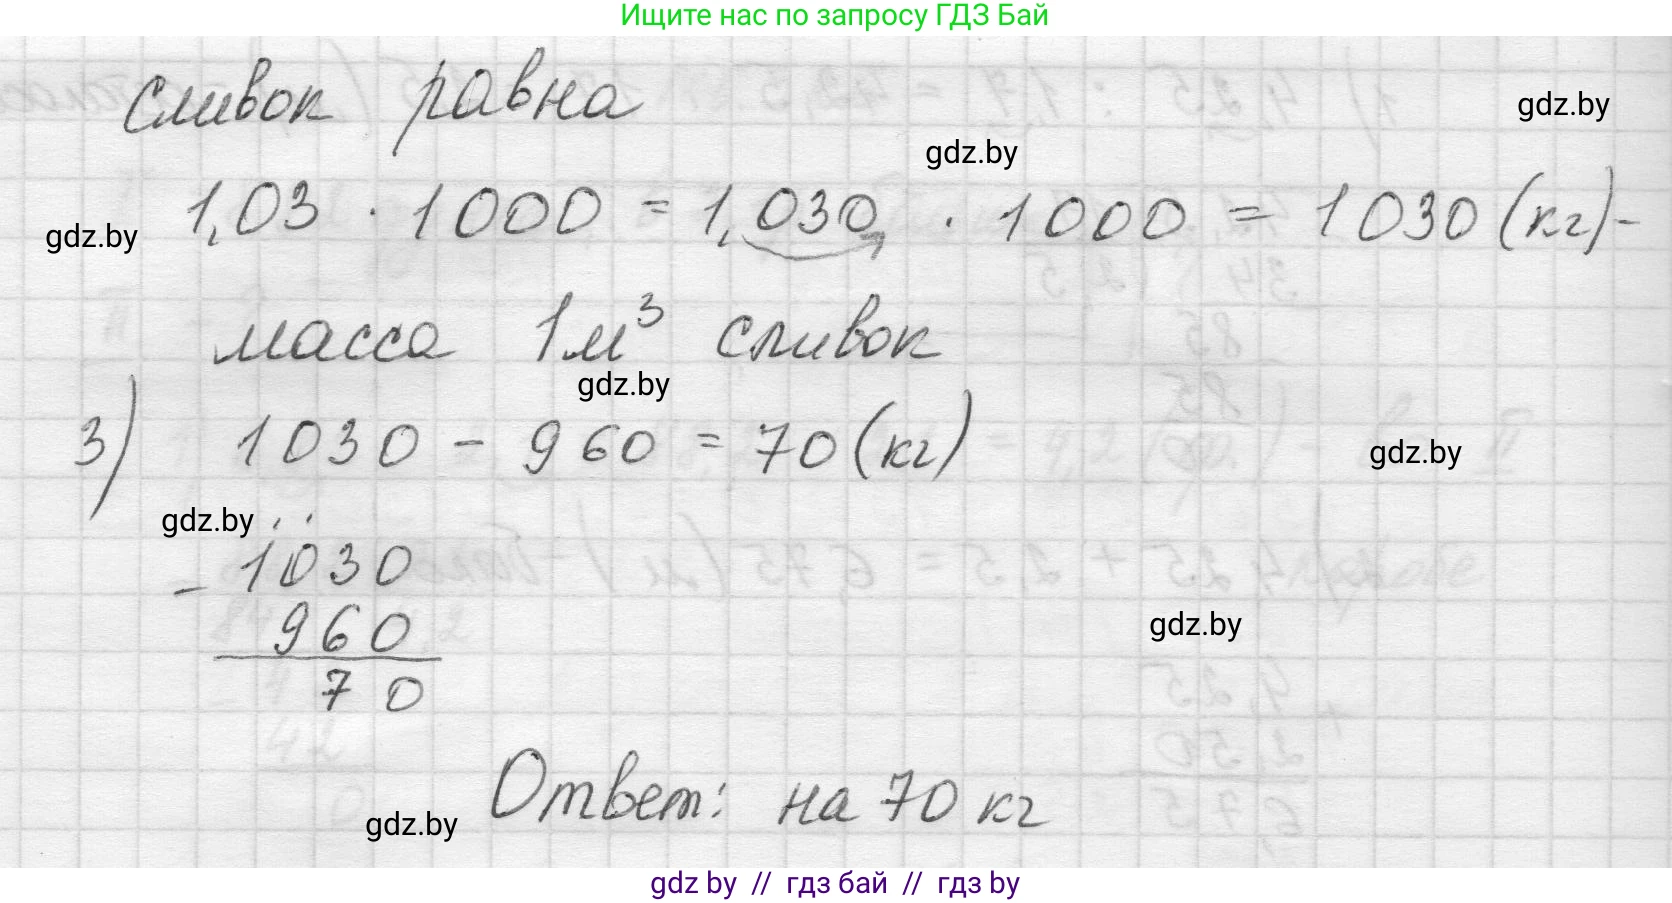 Ищите нас по запросу ГДЗ Бай
сливок равна
gdz.by
gdz.by
1,03 · 1000 = 1,030 · 1000 = 1030 (кг) -
gdz.by
масса 1 м³ сливок
gdz.by
3) 1030 - 960 = 70 (кг)
gdz.by
gdz.by
1030
- 960
70
gdz.by
Ответ: на 70 кг
gdz.by
gdz by // гдз бай // гдз by